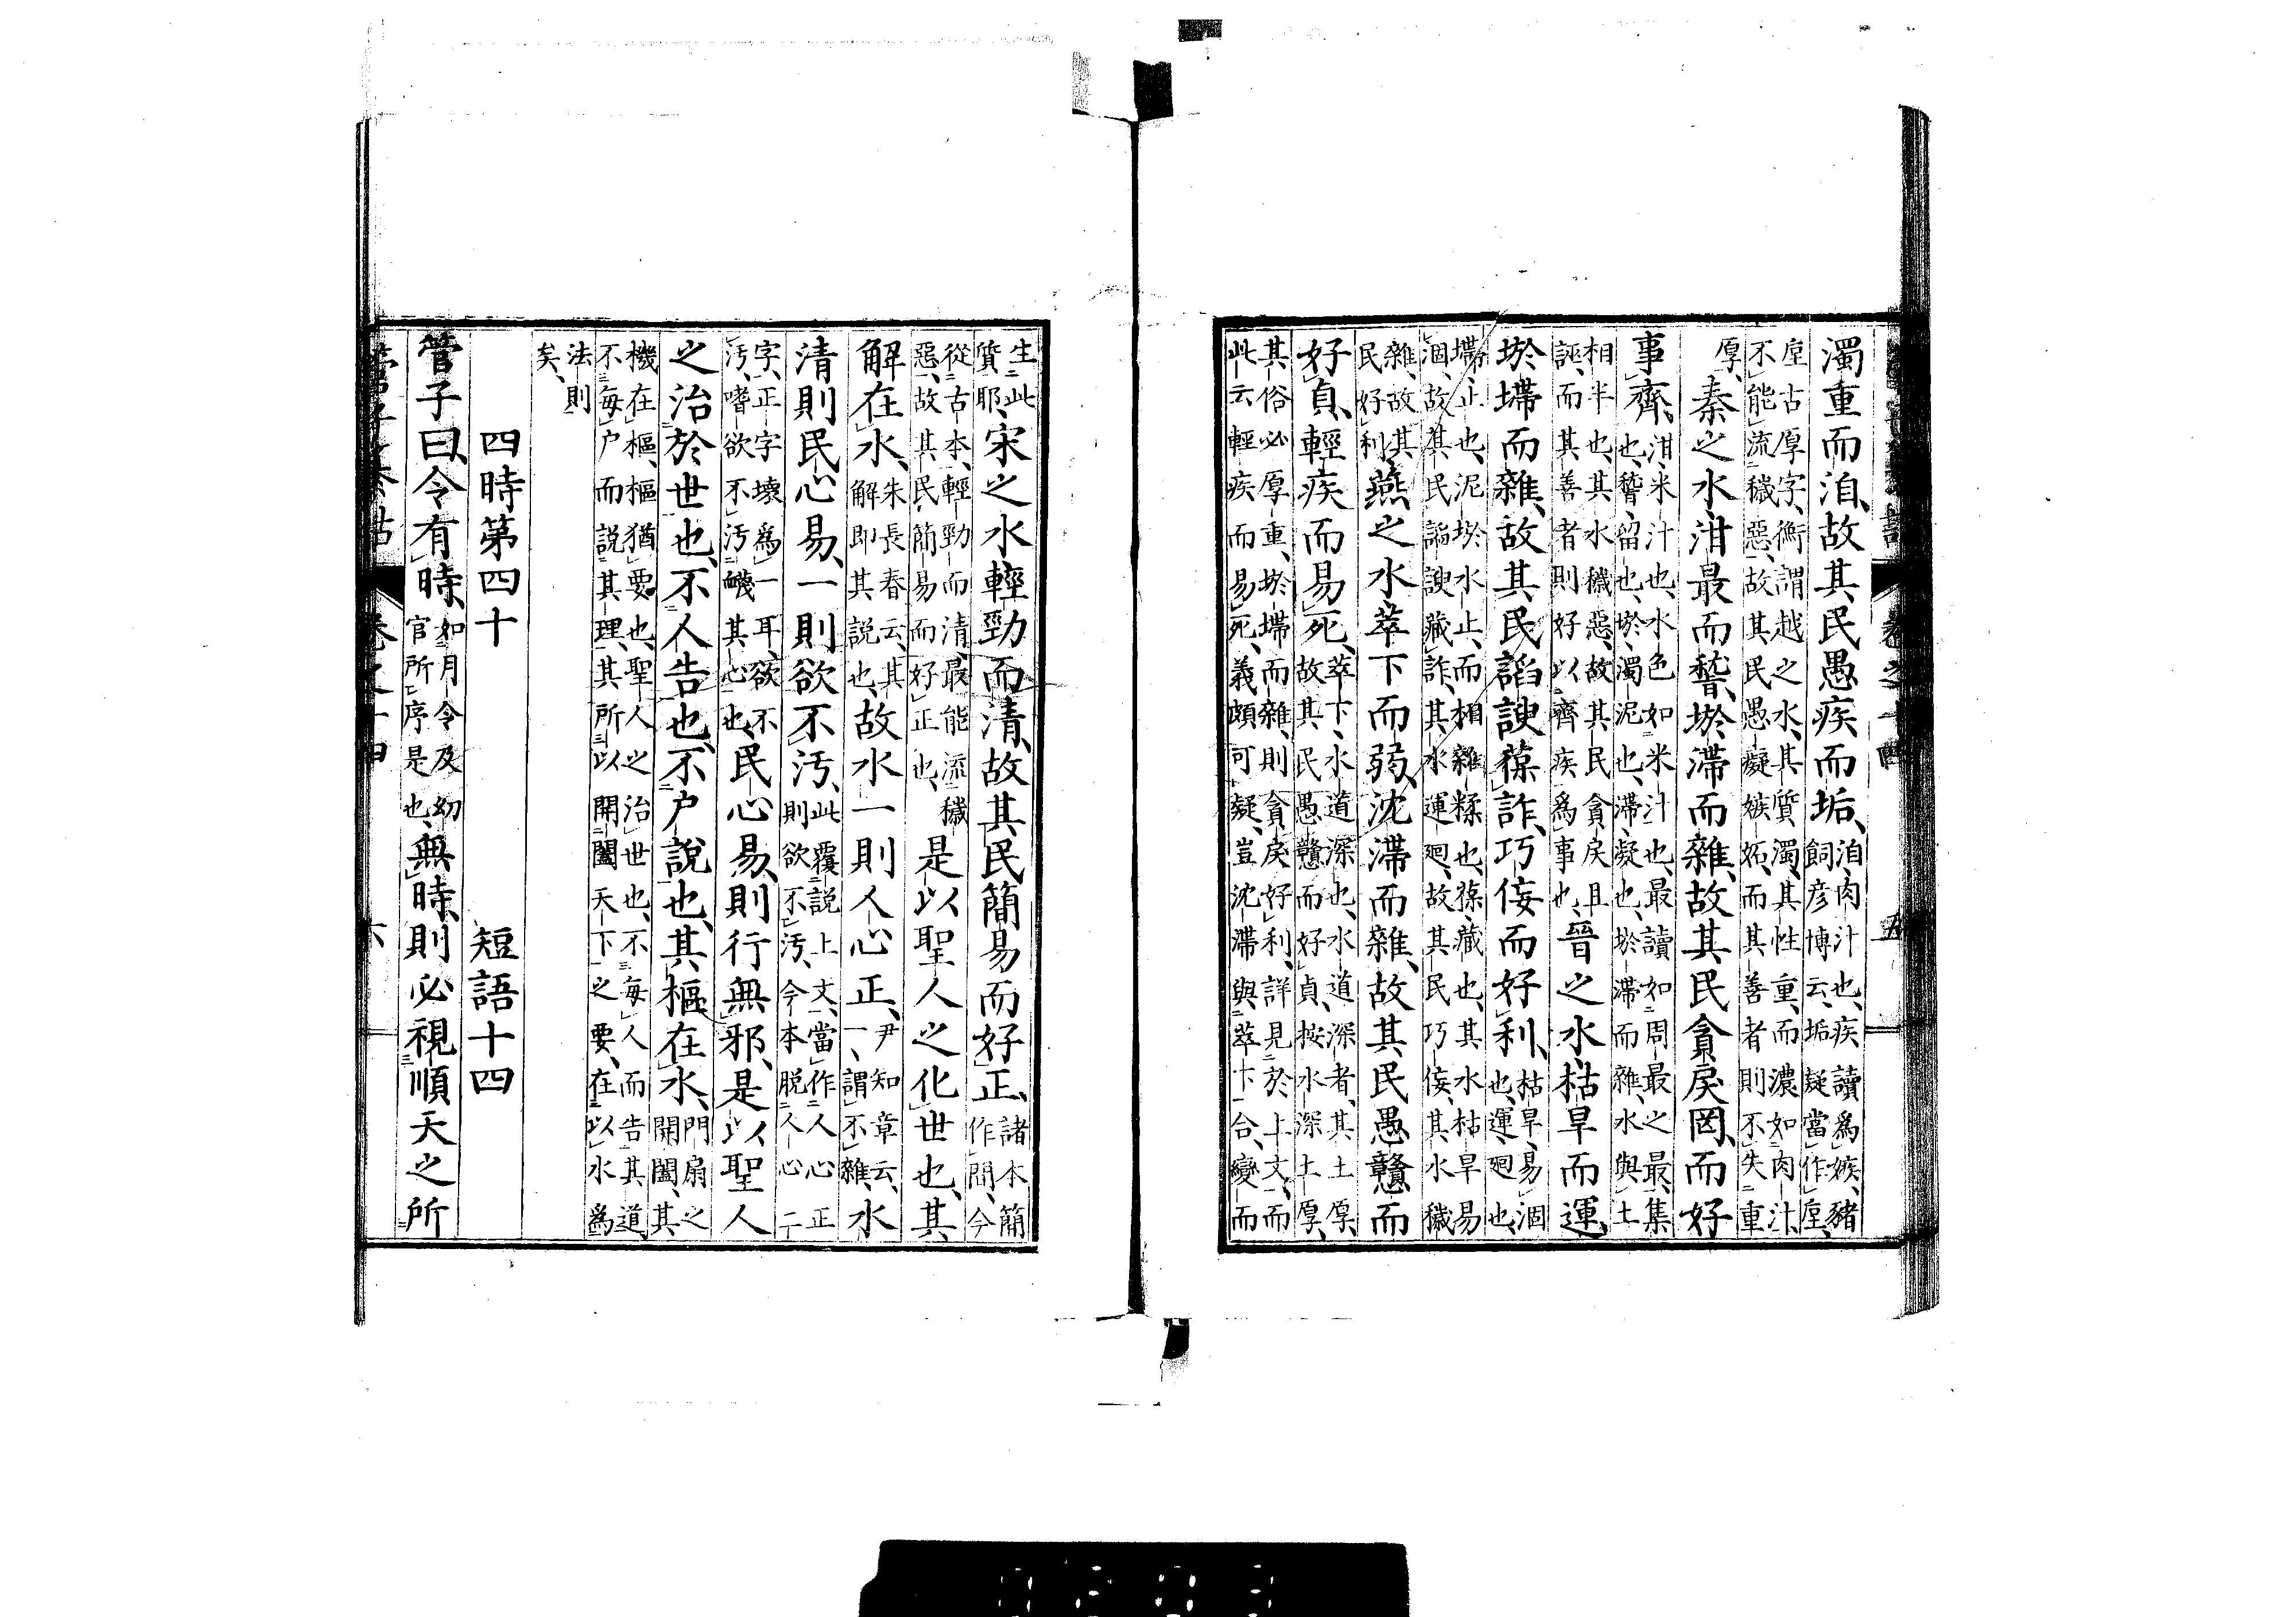 濁重而洎、故其民愚疾而垢、洎、肉汁也、疾讀爲嫉、豬飼彦博云、垢疑當作垕、
垕古厚字、衡謂越之水、其質濁、其性重、而濃如肉汁、不能流穢惡、故其民愚癡嫉妬、而其善者則不失重
厚、秦之水、泔最而稽、淤滯而雜、故其民貪戾罔、而好
事齊、泔、米汁也、水色如米汁也、最讀如周最之最、集也、稽、留也、淤、濁泥也、滯、凝也、淤滯而雜、水與土
相半也、其水穢惡、故其民貪戾且誣、而其善者則好以齊疾爲事也、晉之水、枯旱而運、
淤墆而雜、故其民諂諛葆詐、巧佞而好利、枯旱、易涸也、運、廻也、
墆、止也、泥淤水止、而相雜糅也、葆、藏也、其水枯旱易涸、故其民諂諛藏詐、其水運廻、故其民巧佞、其水穢
雜、故其民好利、燕之水、萃下而弱、沈滯而雜、故其民愚戇而
好貞、輕疾而易死、萃下、水道深也、水道深者、其土厚、故其民愚戇而好貞、按水深土厚、
其俗必厚重、淤墆而雜、則貪戾好利、詳見於上文、而此云輕疾而易死、義頗可疑、豈沈滯與萃下合、變而
卷之十四
五
生此質耶、宋之水、輕勁而清、故其民簡易而好正、諸本簡作閒、今
從古本、輕勁而清、最能流穢惡、故其民簡易而好正也、是以聖人之化世也、其
解在水、朱長春云、其解即其説也、故水一則人心正、尹知章云、一、謂不雜、水
清則民心易、一則欲不汚、此覆説上文、當作人心正則欲不汚、今本脱人心二
字、正字壞爲一耳、欲不汚、嗜欲不汚衊其心也、民心易、則行無邪、是以聖人
之治於世也、不人告也、不户說也、其樞在水、門扇之開闔、其
機在樞、樞猶要也、聖人之治世也、不毎人而告其道、不毎户而説其理、其所以開闔天下之要、在以水爲
法則矣、
四時第四十　短語十四
管子曰、令有時、如月令及幼官所序是也、無時、則必視順天之所
管子纂詁　卷之十四　六